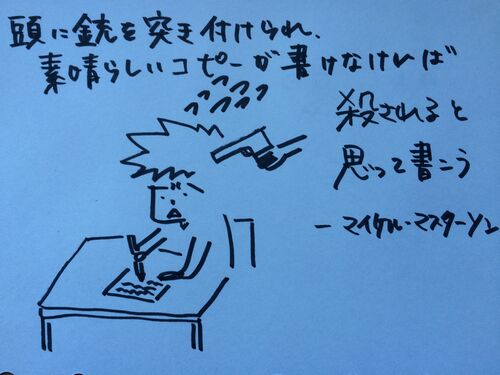 頭に銃を突き付けられ、
素晴らしいコピーが書けなければ
殺されると
思って書こう
ーマイケル・マスターソン